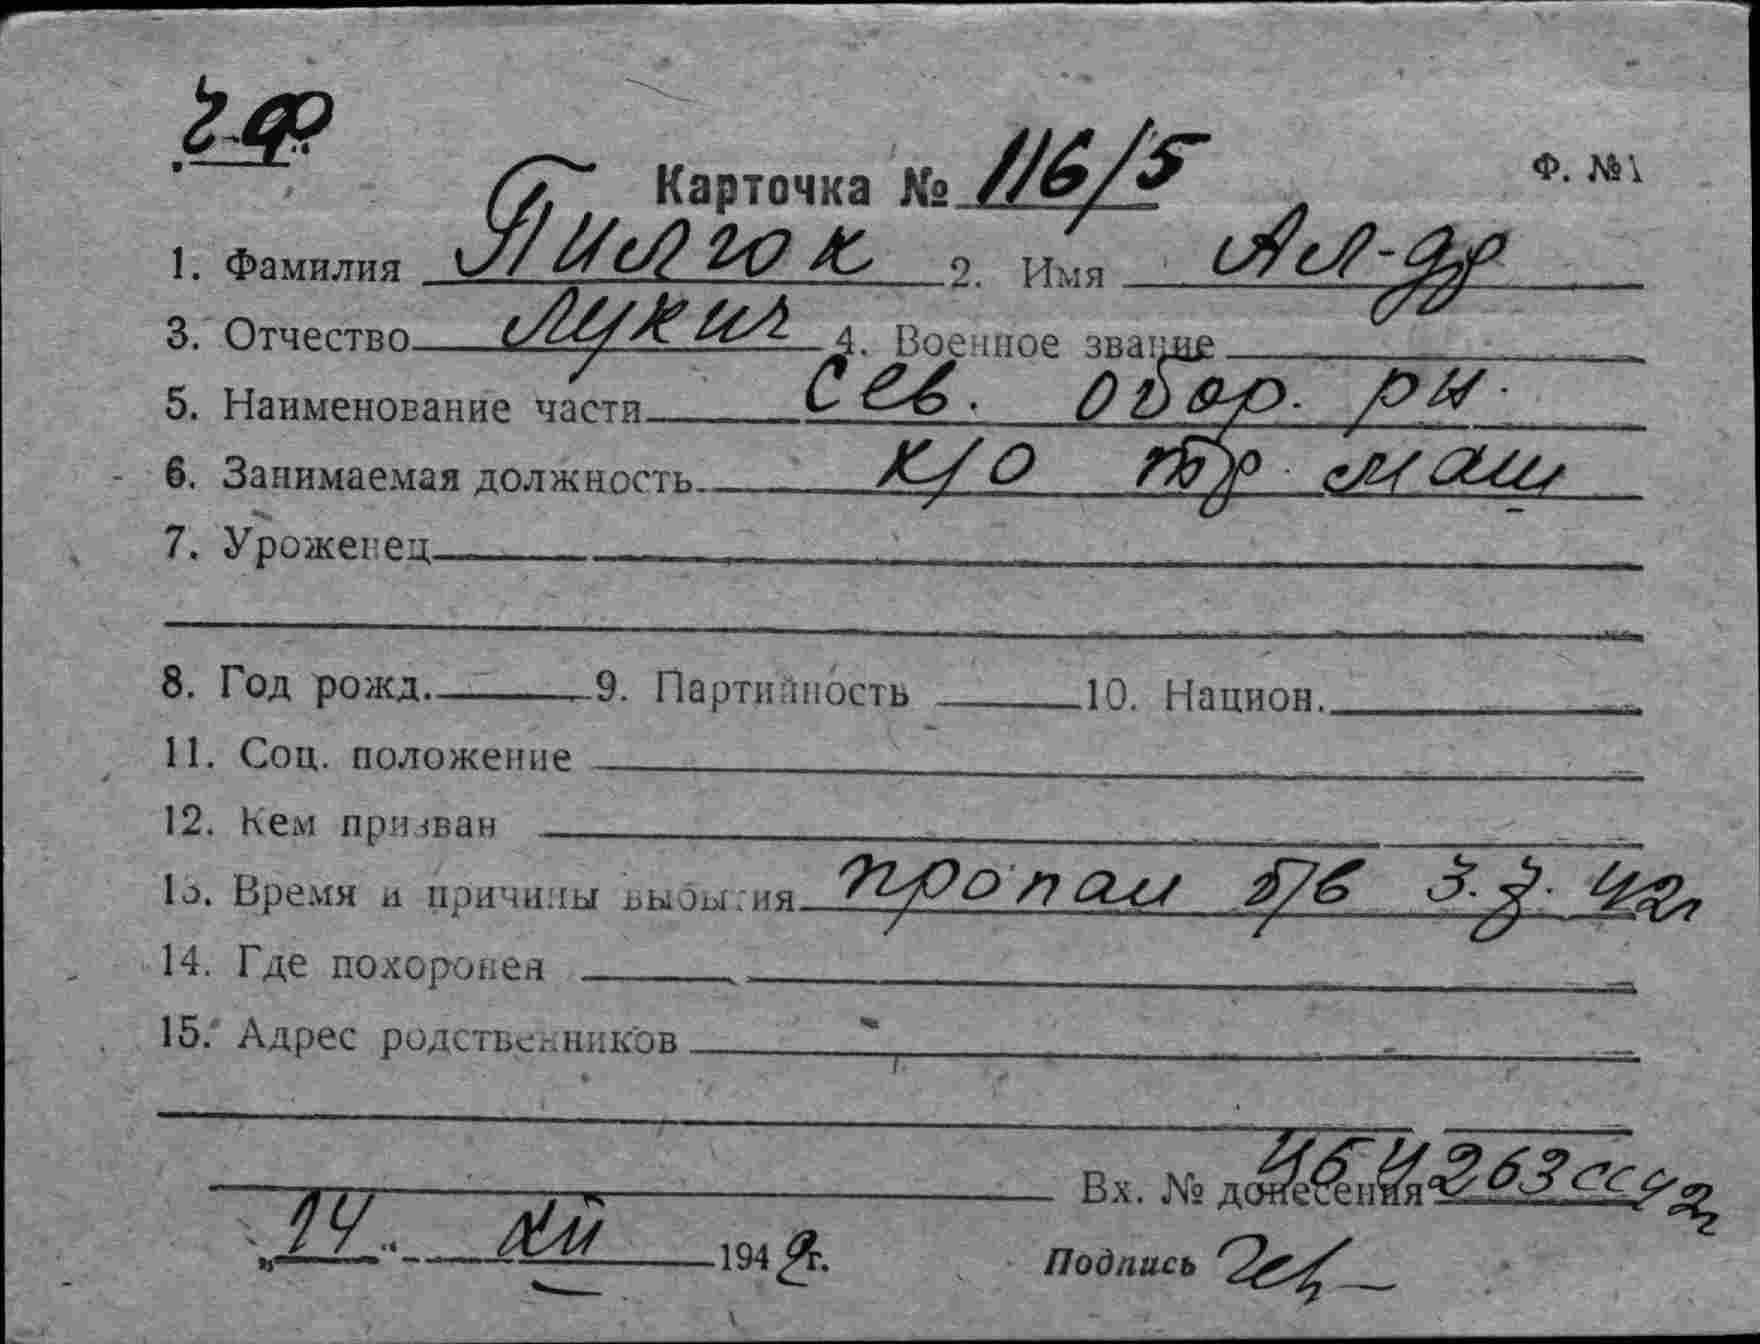 чф
Карточка № 116/5 Ф. №1
1. Фамилия Пилгок 2. Имя Ал-др
3. Отчество Лукич 4. Военное звание
5. Наименование части Сев. обор. р-н.
6. Занимаемая должность к/о тр. маш
7. Уроженец
8. Год рожд. 9. Партийность 10. Национ.
11. Соц. положение
12. Кем призван
13. Время и причины выбытия пропал б/в 3.7.42г
14. Где похоронен
15. Адрес родственников
Вх. № донесения 464263сс 42г
„14“ XII 1942г. Подпись